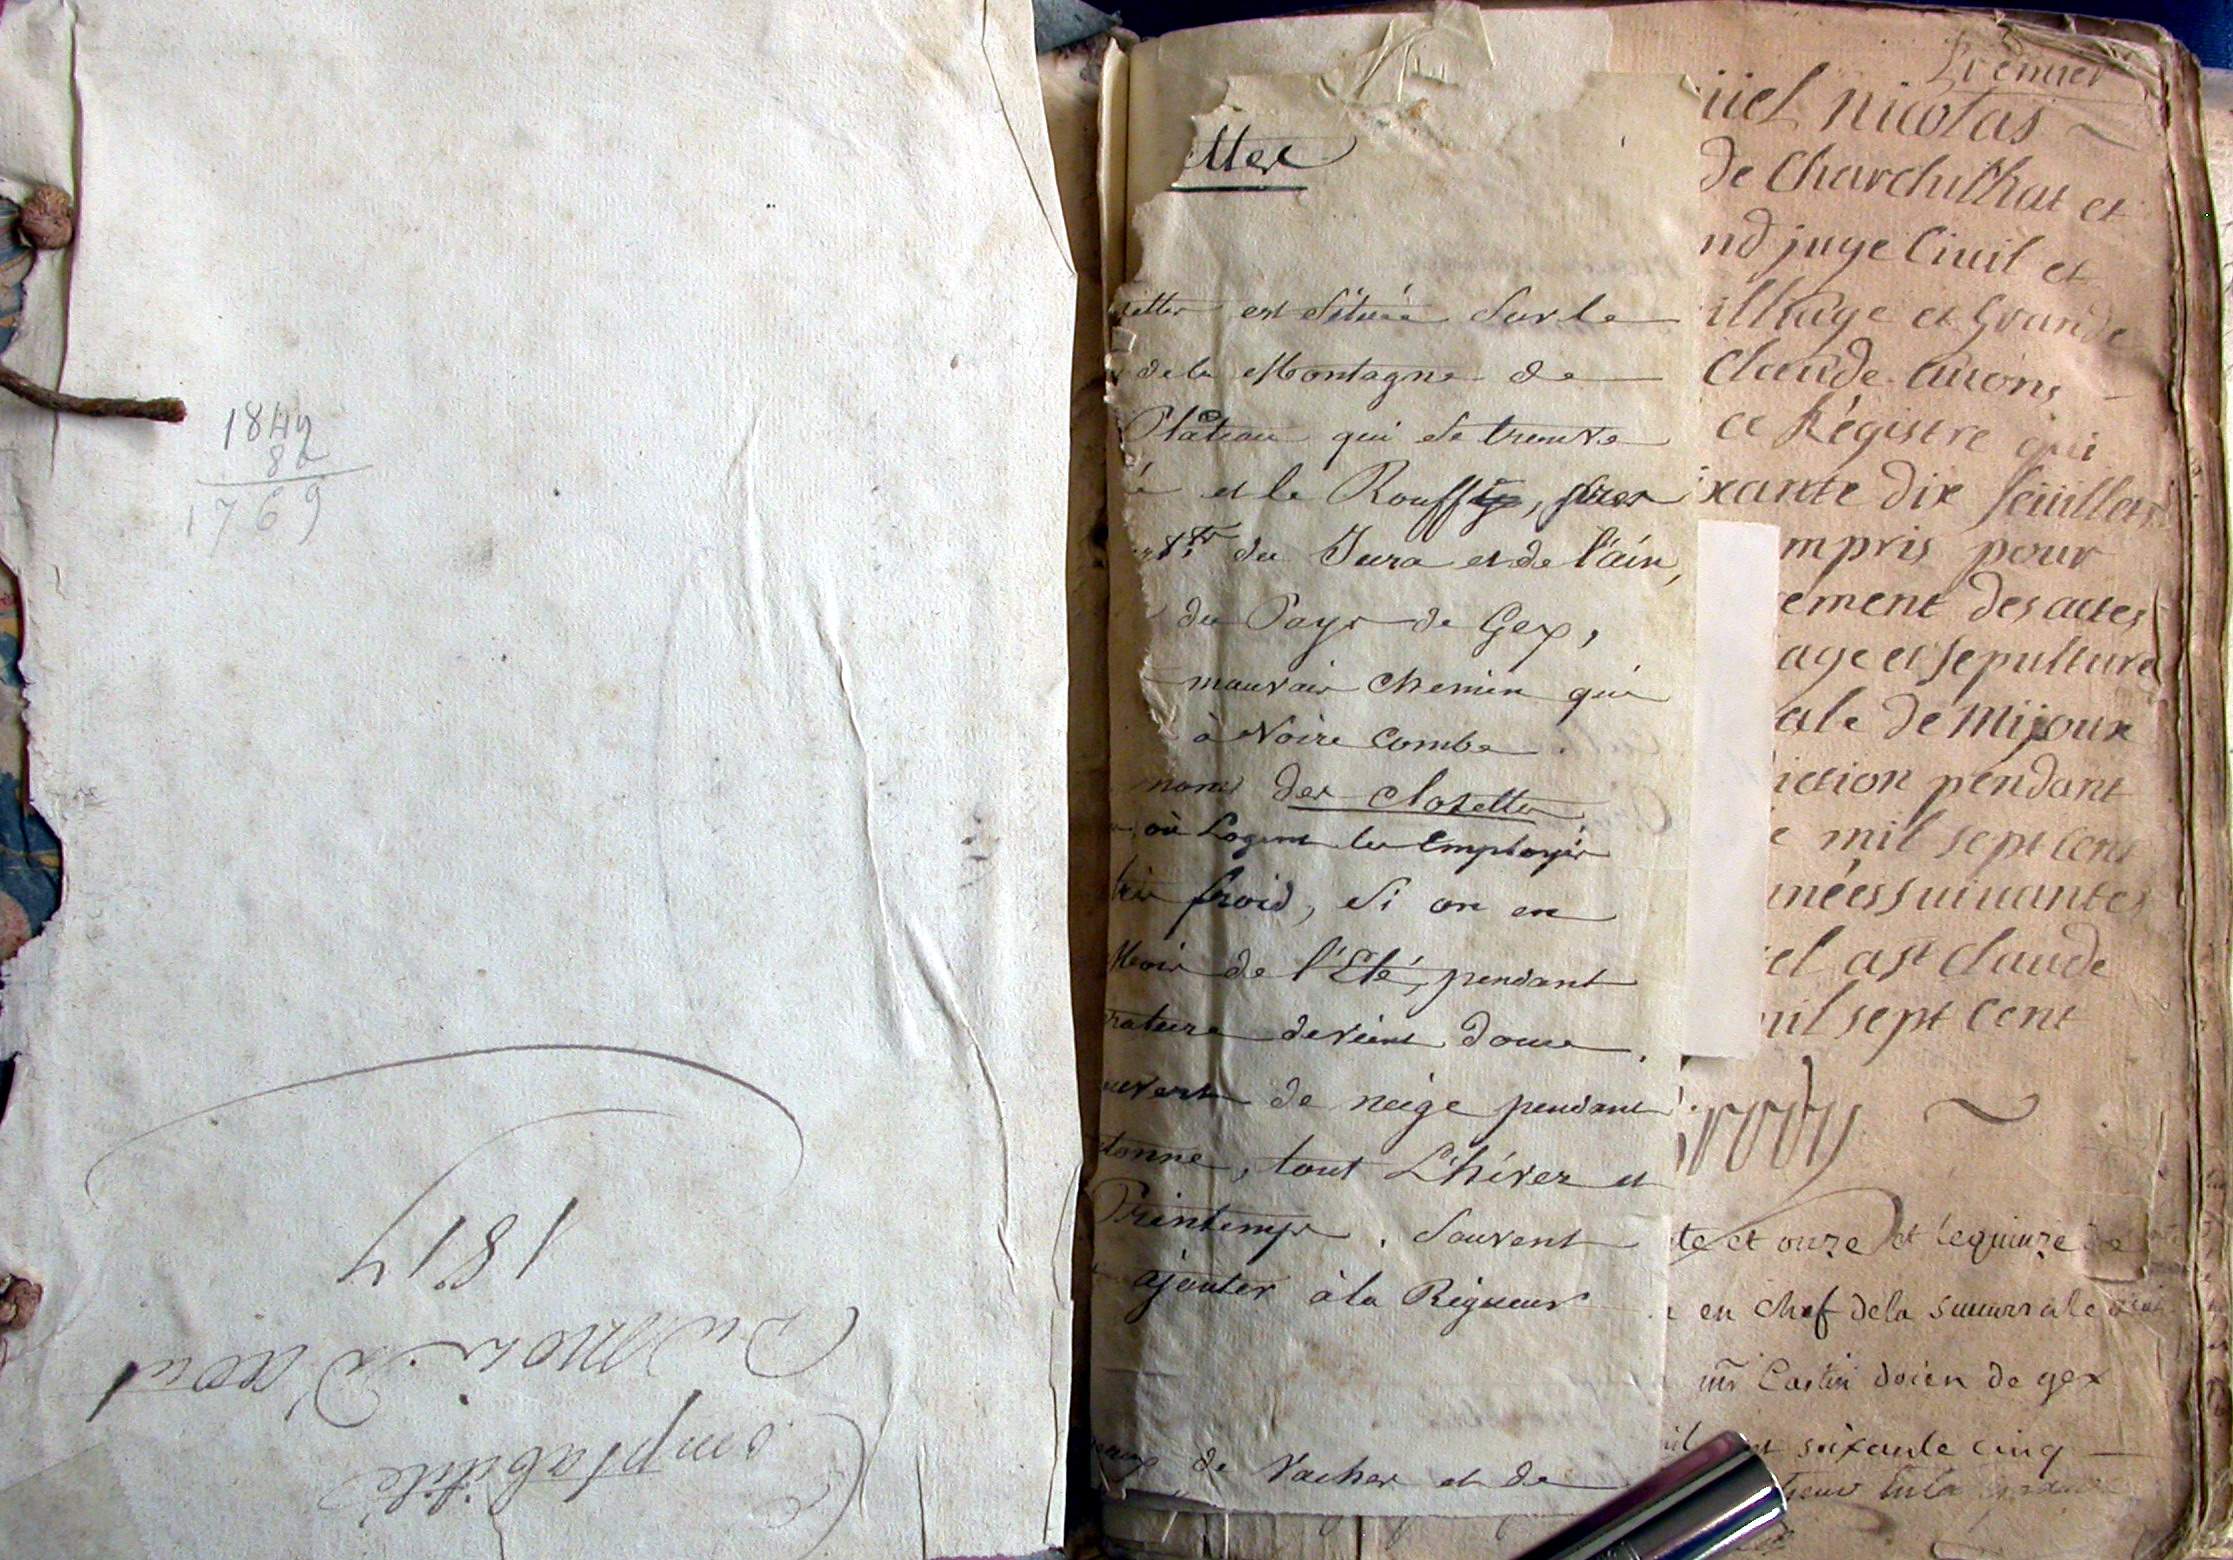 1849
80
1769
Comptabilité
Du Mois D'Aout
1817
ettes
settes est située sur le
de la Montagne de
Plateau qui se trouve
et le Rouffy, sur
du Jura et de l'ain,
du Pays de Gex,
mauvais chemin qui
à Noire Combe.
nom des closettes
où Logent les Employés
très froid, si on en
Mois de l'Eté, pendant
rature devient douce.
uvert de neige pendant
tonne, tout L'hiver et
Printemps. Souvent
ajouter à la Rigueur
de Vaches et de
Premier
uel nicolas
de Charchilhat et
nd juge Ciuil et
illiage et Grande
Claude auons
ce Régistre qui
ixante dix feüillets
mpris pour
ement des actes
age et sepulture
ale de Mijoux
iction pendant
mil sept cent
nées suiuantes
el a St claude
mil sept Cent
te et onze et le quinze de
en Chef de la succursale
Castin doien de gex
soixante cinq